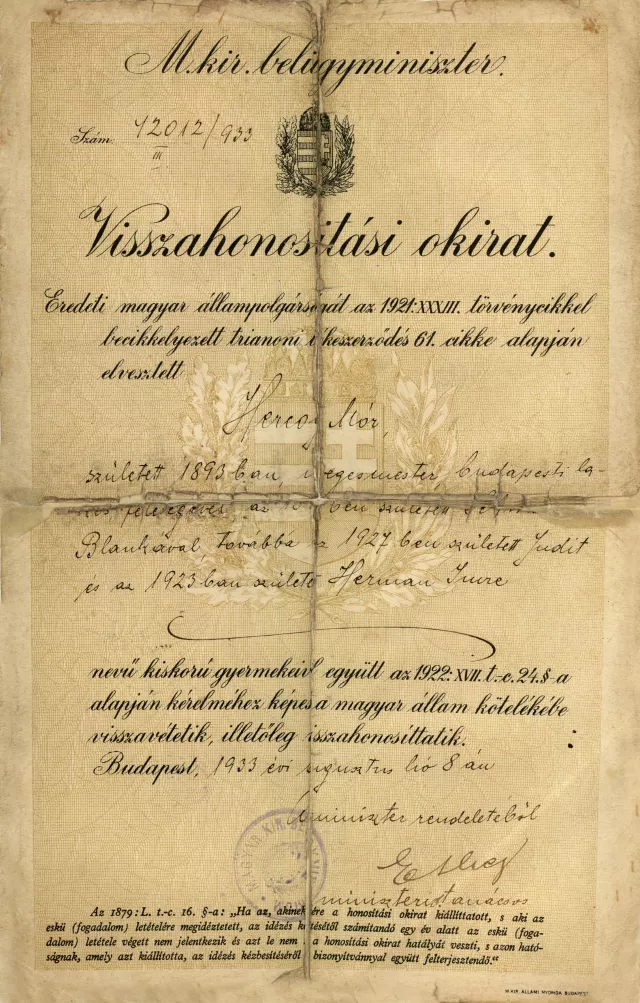 M. kir. belügyminiszter.
Szám 12012/933
III
Visszahonosítási okirat.
Eredeti magyar állampolgárságát az 1921:XXXIII. törvénycikkel
becikkelyezett trianoni békeszerződés 61. cikke alapján
elvesztett
Mór,
született 1893-ban, budapesti la-
feleségével az ben született
Blankával továbbá 1927-ben született Judit
és az 1923-ban született Herman Imre
nevű kiskorú gyermekeivel együtt az 1922:XVII. t.-c. 24.§-a
alapján kérelméhez képest a magyar állam kötelékébe
visszavétetik, illetőleg visszahonosíttatik.
Budapest, 1933 évi augusztus hó 8 án
A miniszter rendeletéből
miniszteri tanácsos
MAGYAR KIR.
Az 1879: L. t.-c. 16. §-a: „Ha az, akinek részére a honosítási okirat kiállíttatott, s aki az
eskü (fogadalom) letételére megidéztetett, az idézés kézbesítésétől számítandó egy év alatt az eskü (foga-
dalom) letétele végett nem jelentkezik és azt le nem a honosítási okirat hatályát veszti, s azon ható-
ságnak, amely azt kiállította, az idézés kézbesítéséről bizonyítvánnyal együtt felterjesztendő.“
M. KIR. ÁLLAMI NYOMDA, BUDAPEST